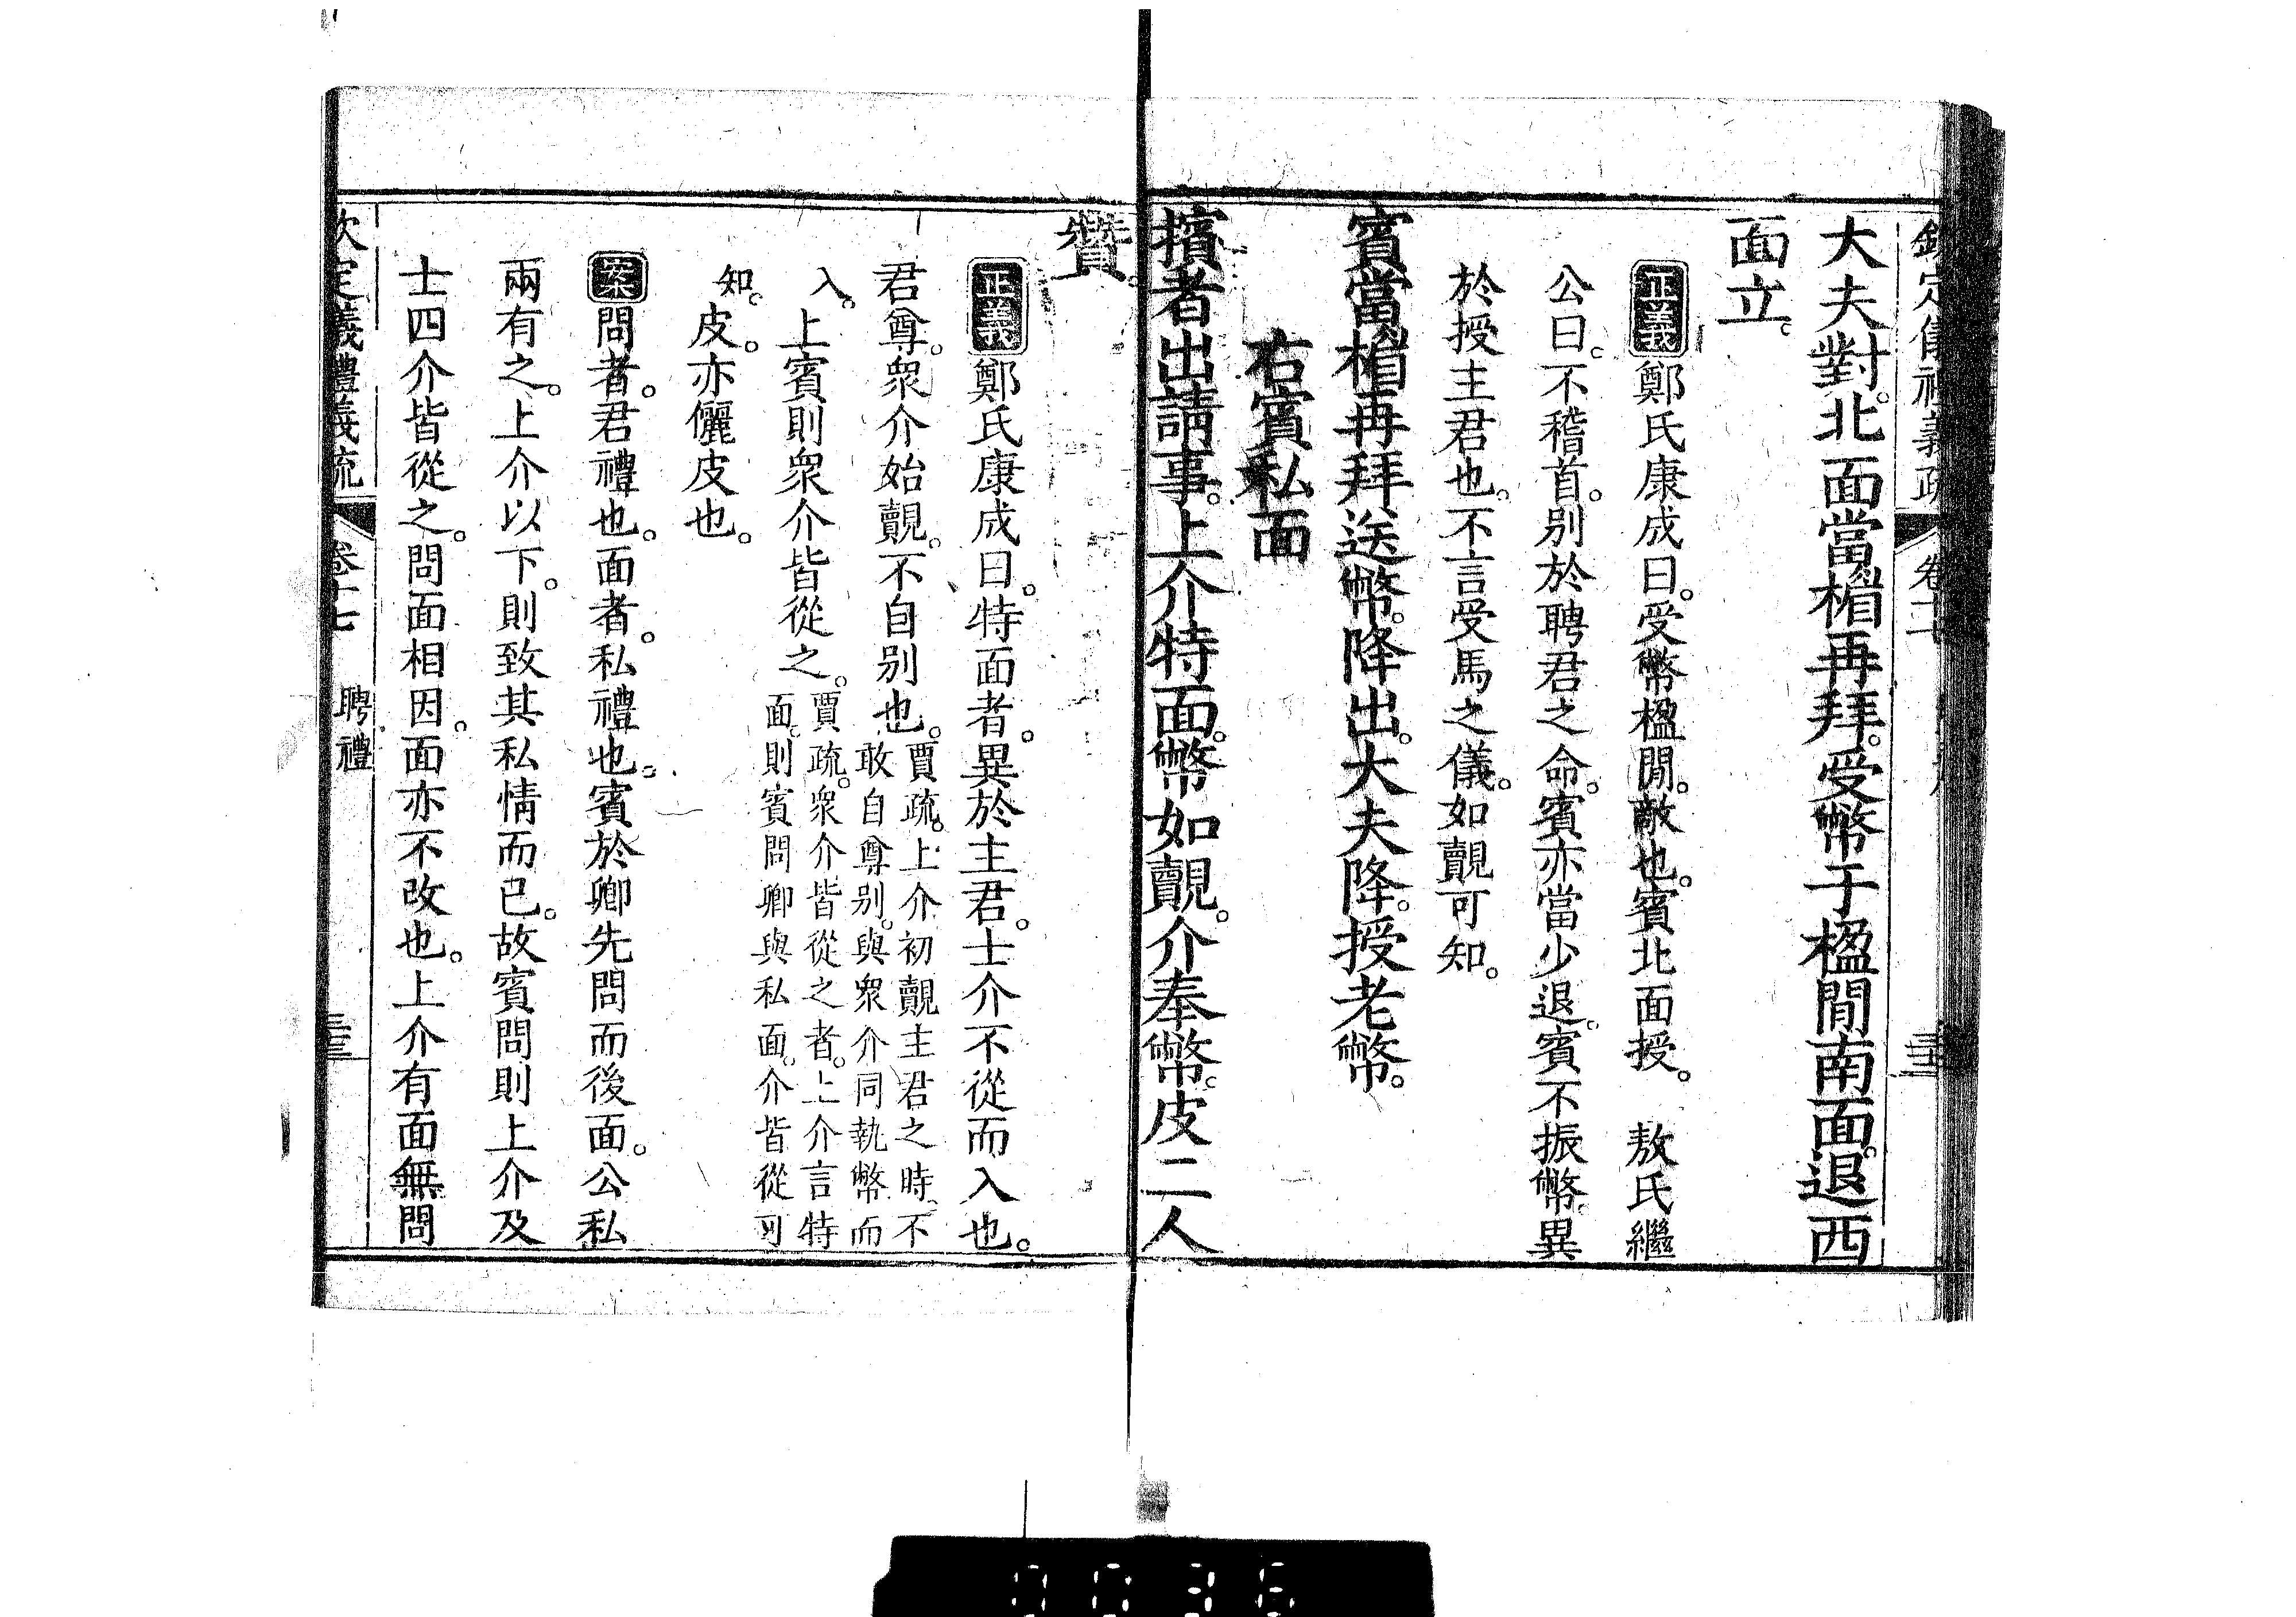 欽定儀禮義疏 卷十七
大夫對。北面當楣再拜。受幣于楹閒南面。退西
面立。
正義鄭氏康成曰。受幣楹閒。敵也。賓北面授。 敖氏繼
公曰。不稽首。别於聘君之命。賓亦當少退。賓不振幣。異
於授主君也。不言受馬之儀。如覿可知。
賓當楣再拜送幣。降出。大夫降。授老幣。
右賓私面
擯者出請事。上介特面。幣如覿。介奉幣。皮二人
贊。
正義鄭氏康成曰。特面者。異於主君。士介不從而入也。
君尊。衆介始覿。不自别也。賈疏。上介初覿主君之時。不
敢自尊别。與衆介同執幣而
入。上賓則衆介皆從之。賈疏。衆介皆從之者。上介言特
面。則賓問卿與私面。介皆從可
知。皮。亦儷皮也。
案問者。君禮也。面者。私禮也。賓於卿先問而後面。公私
兩有之。上介以下。則致其私情而已。故賓問則上介及
士四介皆從之。問面相因。面亦不改也。上介有面無問
欽定儀禮義疏 卷十七 聘禮